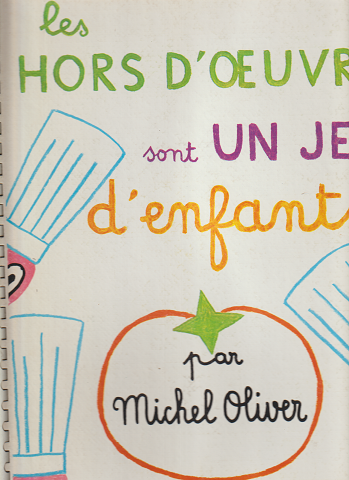 les
HORS D'ŒUVR
sont UN JE
d'enfant
par
Michel Oliver